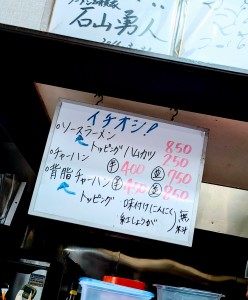 石山勇人
イチオシ!
○ソースラーメン 850
トッピング ハムカツ 250
○チャーハン 半 400 並 750
○背脂チャーハン 半 450 並 850
トッピング 味付けにんにく 無料
紅しょうが